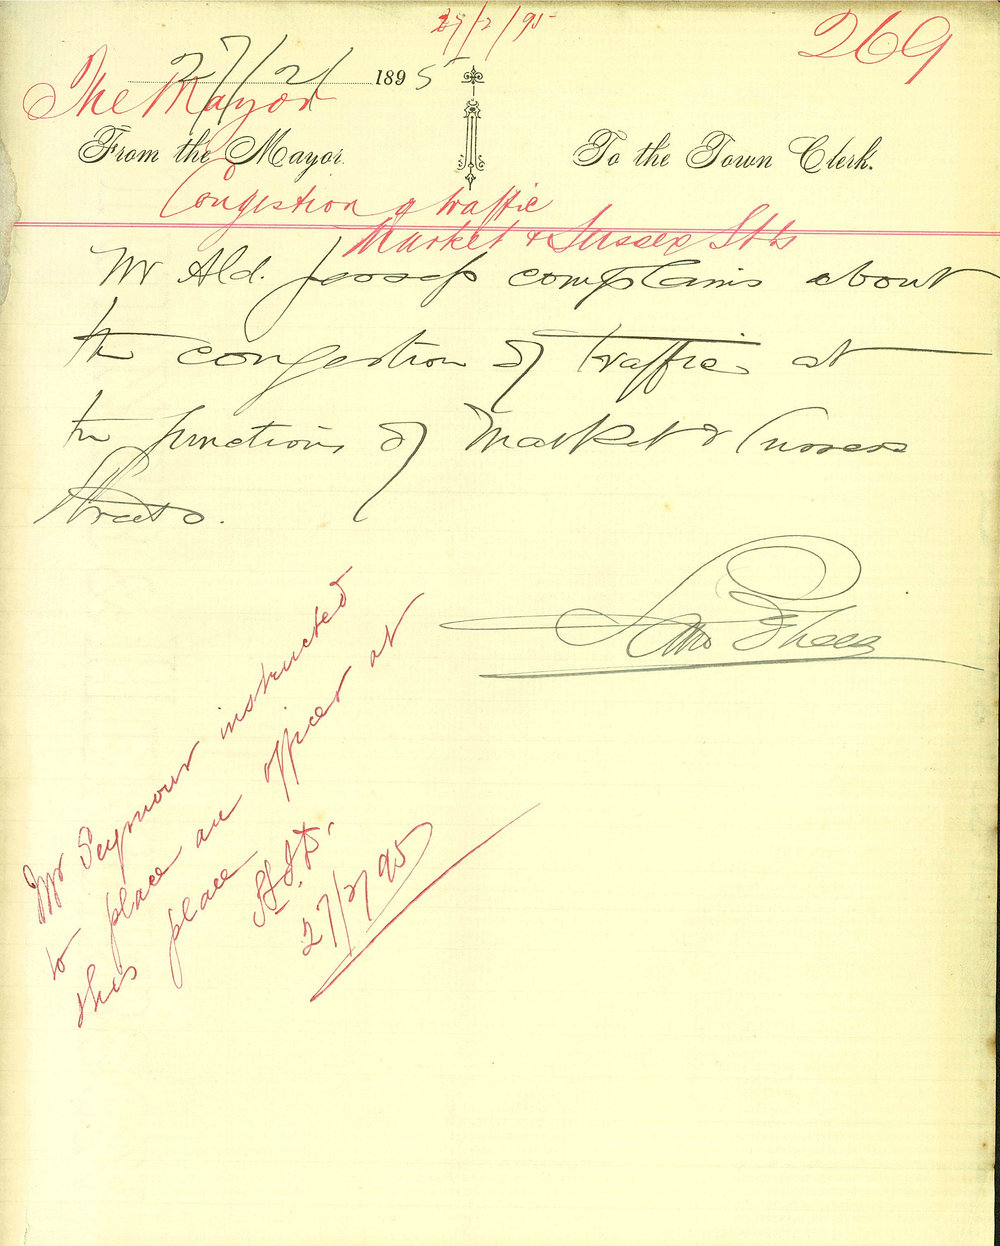 27/2/95
269
27/2/ 1895
The Mayor
From the Mayor. To the Town Clerk.
Congestion of traffic
Market & Sussex Sts
Mr Ald. Jessep complains about
the congestion of traffic at
the junctions of Market & Sussex
Streets.
Mr Seymour instructed
to place an officer at
this place
27/2/95